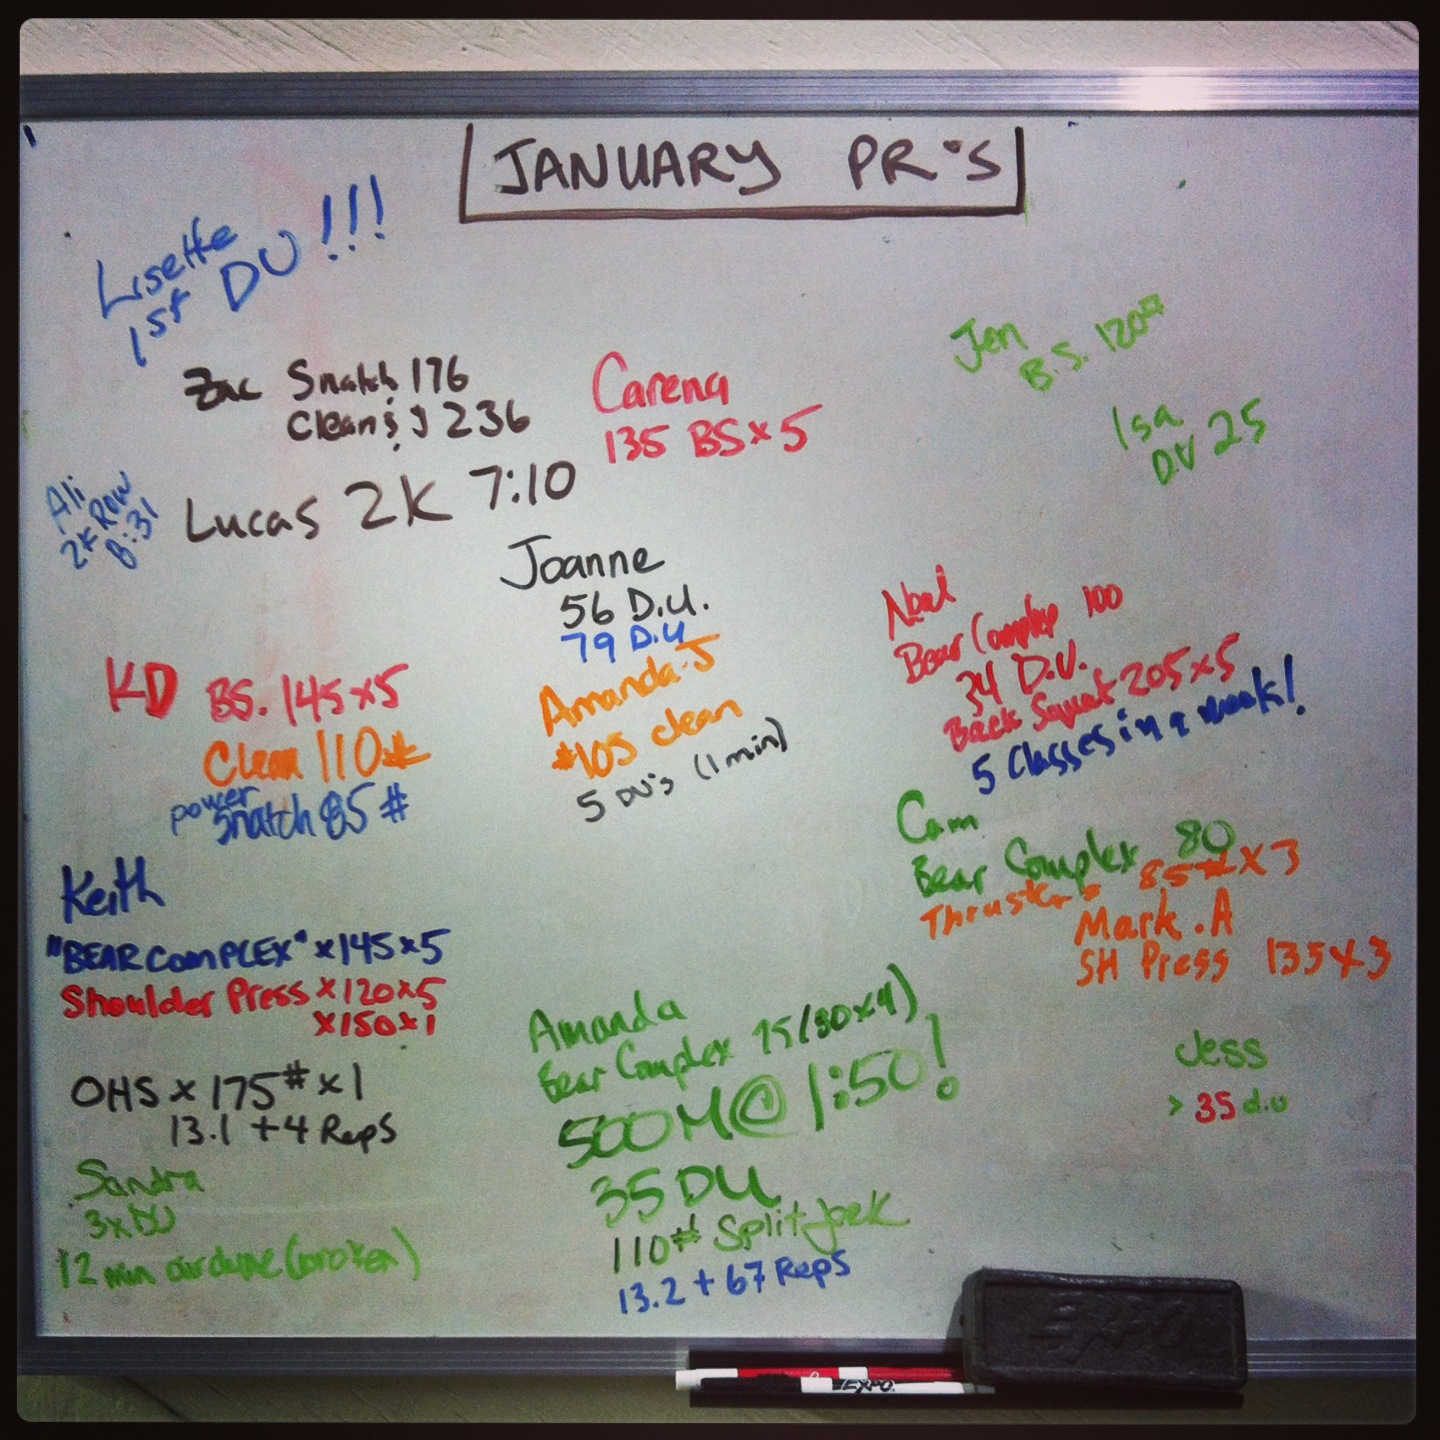 JANUARY PR'S
Lisette
1st DU!!!
Zac Snatch 176
Clean & J 236
Carena
135 BS x 5
Jen
B.S. 120#
Isa
DU 25
Ali
2K Row
8:31
Lucas 2K 7:10
Joanne
56 D.U.
79 D.U
Amanda-J
#105 clean
5 DU's (1 min)
Bear Complex 100
34 D.U.
Back Squat 205 x 5
5 Classes in a week!
KD BS. 145 x 5
Clean 110#
power
Snatch 85 #
Cam
Bear Complex 80
Thrusters 85# x 3
Mark.A
SH Press 135 x 3
Keith
"BEAR COMPLEX" x 145 x 5
Shoulder Press x 120 x 5
x 150 x 1
OHS x 175# x 1
13.1 + 4 Reps
Sandra
3x DU
12 min airdyne (broken)
Amanda
Bear Complex 75 (80x4)
500M @ 1:50!
35 DU
110# Split Jerk
13.2 + 67 Reps
Jess
> 35 d.u
EXPO
EXPO